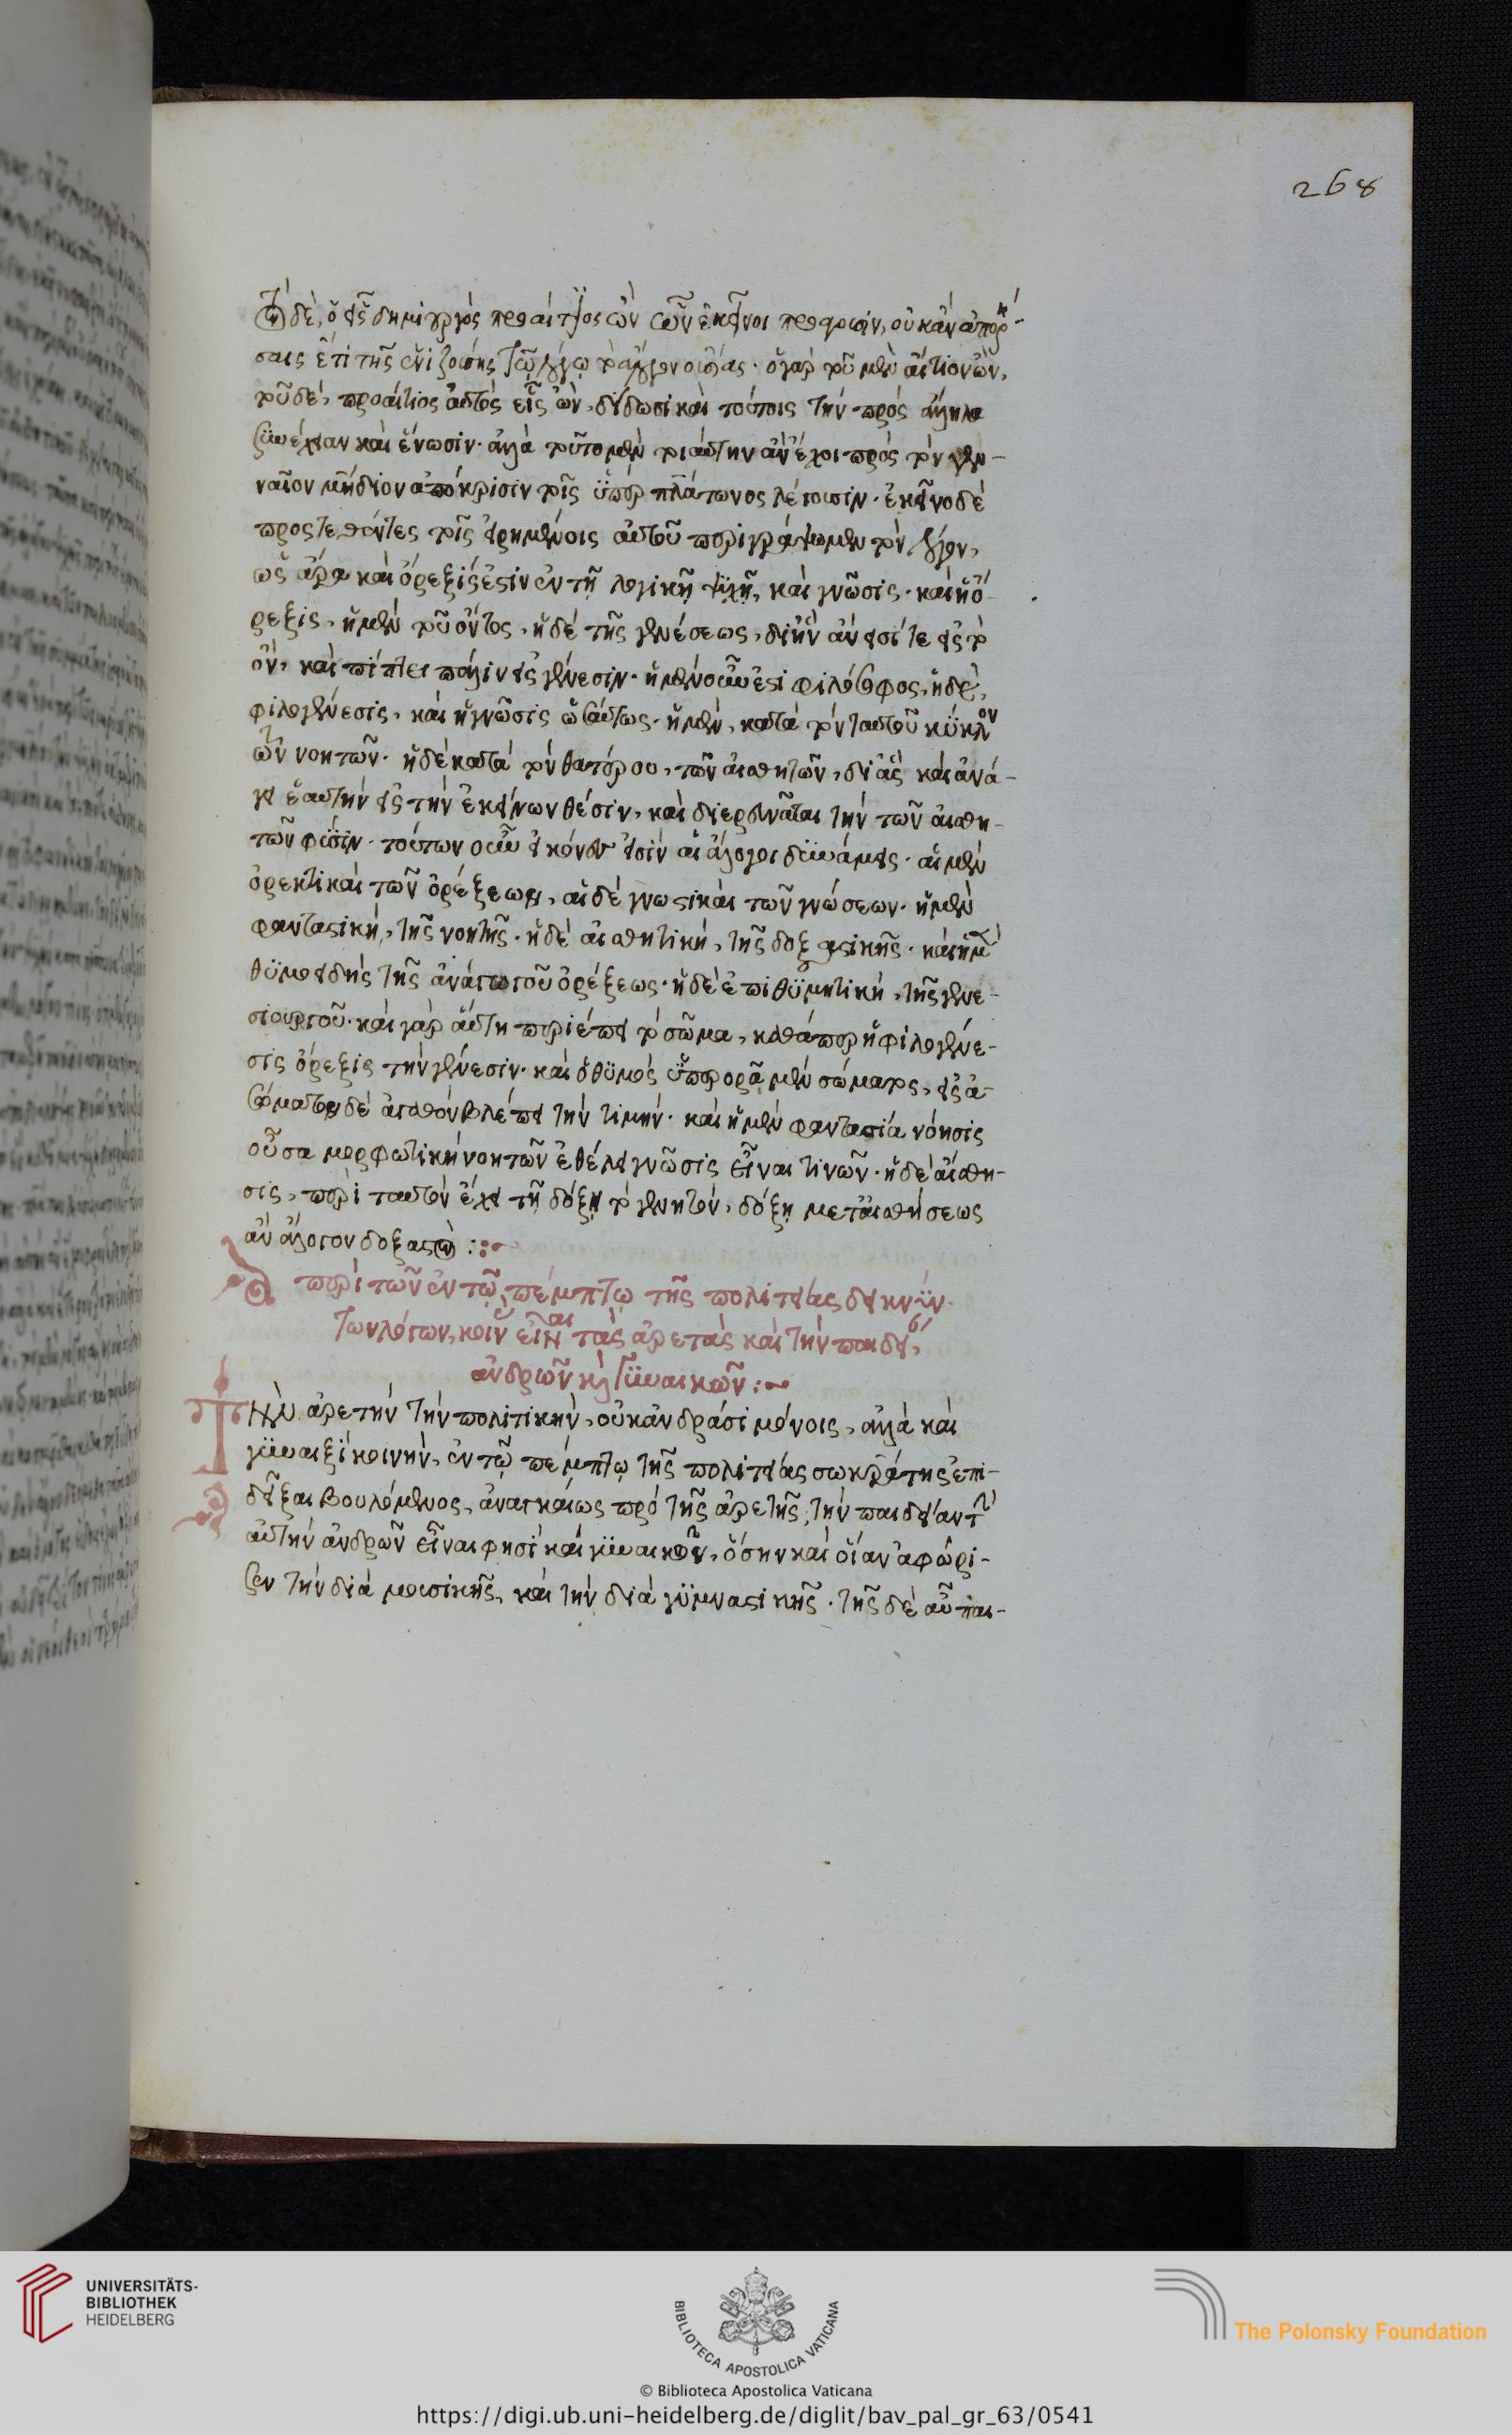 268
τῶ δὲ, ὁ εἷς δημιουργὸς προαίτιος ὢν ὧν ἐκεῖνοι προφασιν, οὐκ ἂν ἀπορή-
σαις ἔτι τῆς ἑνιζούσης τῷ λόγῳ τὸ ἄλογον οὐσίας· ὁ γὰρ τοῦ μὲν αἴτιον ὢν,
τοῦ δὲ, προαίτιος αὐτὸς εἷς ὢν, δίδωσι καὶ τούτοις τὴν πρὸς ἄλληλα
συνέχειαν καὶ ἕνωσιν· ἀλλὰ τοῦτο μὲν τοιαύτην ἂν ἔχοι πρὸς τὸν γεν-
ναῖον μήδιον ἀπόκρισιν τοῖς ὑπὲρ πλάτωνος λέγουσιν· ἐκεῖνο δὲ
προςτεθέντες τοῖς εἰρημένοις αὐτοῦ περιγράψωμεν τὸν λόγον,
ὡς ἄρα καὶ ὄρεξίς ἐστιν ἐν τῇ λογικῇ ψυχῇ, καὶ γνῶσις· καὶ ἡ ὄ-
ρεξις, ἡ μὲν τοῦ ὄντος, ἡ δὲ τῆς γενέσεως, δι' ἣν ἄνεισί τε εἰς τὸ
ὂν, καὶ πίπτει πάλιν εἰς γένεσιν· ἡ μὲν οὖν ἐστι φιλόσοφος, ἡ δὲ,
φιλογένεσις, καὶ ἡ γνῶσις ὡσαύτως· ἡ μὲν, κατὰ τὸν ταυτοῦ κύκλον
τῶν νοητῶν· ἡ δὲ κατὰ τὸν θατέρου, τῶν αἰσθητῶν, δι' ἃς καὶ ἀνά-
γει ἑαυτὴν εἰς τὴν ἐκείνων θέσιν, καὶ διερευνᾶται τὴν τῶν αἰσθη-
τῶν φύσιν· τούτων οὖν εἰκόνες εἰσὶν αἱ ἄλογοι δυνάμεις· αἱ μὲν
ὀρεκτικαὶ τῶν ὀρέξεων, αἱ δὲ γνωστικαὶ τῶν γνώσεων· ἡ μὲν
φανταστικὴ, τῆς νοητῆς· ἡ δὲ αἰσθητικὴ, τῆς δοξαστικῆς· καὶ ἡ μὲν
θυμοειδὴς τῆς ἀναγωγοῦ ὀρέξεως· ἡ δὲ ἐπιθυμητικὴ, τῆς γενε-
σιουργοῦ· καὶ γὰρ αὕτη περιέπει τὸ σῶμα, καθάπερ ἡ φιλογένε-
σις ὄρεξις τὴν γένεσιν· καὶ ὁ θυμὸς ὑπερορᾷ μὲν σώματος, εἰς ἀ-
σώματον δὲ ἀγαθὸν βλέπει τὴν τιμήν· καὶ ἡ μὲν φαντασία νόησις
οὖσα μορφωτικὴ νοητῶν ἐθέλει γνῶσις εἶναι τινῶν· ἡ δὲ αἴσθη-
σις, περὶ ταυτὸν ἔχει τῇ δόξῃ τὸ γενητόν, δόξῃ μετ' αἰσθήσεως
ἂν ἀλόγου δοξαστὸν :
περὶ τῶν ἐν τῷ πέμπτῳ τῆς πολιτείας δεικνύν-
των λόγων, κοινὰς εἶναι τὰς ἀρετὰς καὶ τὴν παιδεί,
ἀνδρῶν καὶ γυναικῶν :
Τὴν ἀρετὴν τὴν πολιτικὴν, οὐκ ἀνδράσι μόνοις, ἀλλὰ καὶ
γυναιξὶ κοινὴν, ἐν τῷ πέμπτῳ τῆς πολιτείας σωκράτης ἐπι-
δεῖξαι βουλόμενος, ἀναγκαίως πρὸ τῆς ἀρετῆς, τὴν παιδείαν τὴν
αὐτὴν ἀνδρῶν εἶναι φησὶ καὶ γυναικῶν, ὅσην καὶ οἵαν ἀφώρι-
ζεν τὴν διὰ μουσικῆς, καὶ τὴν διὰ γυμναστικῆς· τῆς δὲ αὖ παι-
UNIVERSITÄTS-
BIBLIOTHEK
HEIDELBERG
BIBLIOTECA APOSTOLICA VATICANA
© Biblioteca Apostolica Vaticana
The Polonsky Foundation
https://digi.ub.uni-heidelberg.de/diglit/bav_pal_gr_63/0541